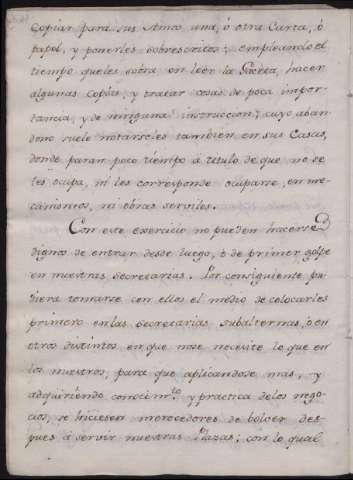 Copiar para sus Amos una, ó otra Carta, ó
papel, y ponerles sobrescritos; empleando el
tiempo que les sobra en leer la Gaceta, hacer
algunas Copias, y tratar cosas de poca impor-
tancia, y de ninguna instruccion; cuyo aban
dono suele notarseles tambien en sus Casas,
donde paran poco tiempo à titulo de que no se
les ocupa, ni les corresponde ocuparse, en me-
canismos, ni obras serviles.
Con este exercicio no pueden hacerse
dignos de entrar desde luego, ò de primer golpe
en nuestras secretarias. Por consiguiente pu
diera tomarse con ellos el medio de colocarles
primero en las secretarias subalternas, ò en
otros distintos en que no se necesite lo que en
las nuestras; para que aplicandose mas, y
adquiriendo conocim.to y practica de los nego-
cios, se hiciesen merecedores de bolver des-
pues à servir nuestras Plazas; con lo qual